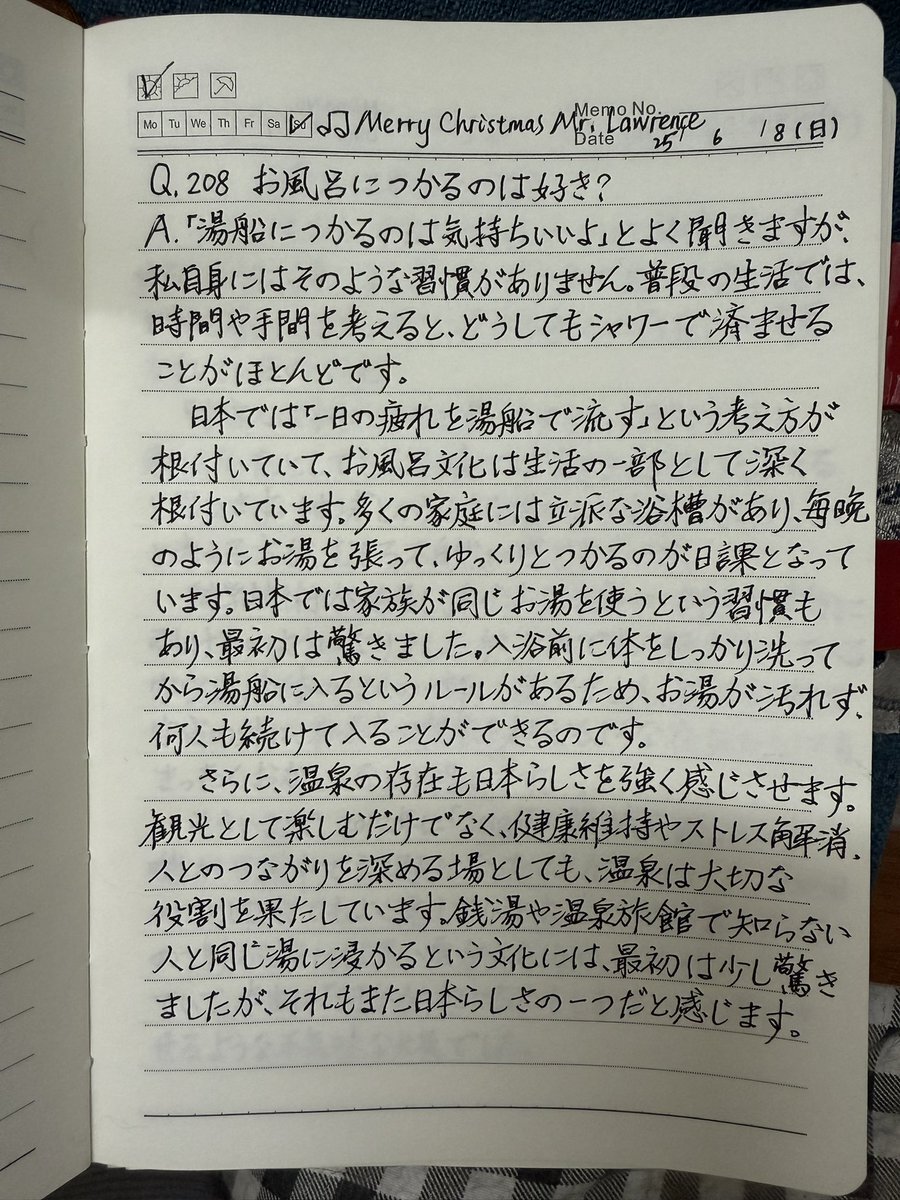 Mo Tu We Th Fr Sa Su ♫ Merry Christmas Mr. Lawrence
Memo No.
Date 25 / 6 / 8 (日)
Q. 208 お風呂につかるのは好き?
A.「湯船につかるのは気持ちいいよ」とよく聞きますが、
私自身にはそのような習慣がありません。普段の生活では、
時間や手間を考えると、どうしてもシャワーで済ませる
ことがほとんどです。
日本では「一日の疲れを湯船で流す」という考え方が
根付いていて、お風呂文化は生活の一部として深く
根付いています。多くの家庭には立派な浴槽があり、毎晩
のようにお湯を張って、ゆっくりとつかるのが日課となって
います。日本では家族が同じお湯を使うという習慣も
あり、最初は驚きました。入浴前に体をしっかり洗って
から湯船に入るというルールがあるため、お湯が汚れず、
何人も続けて入ることができるのです。
さらに、温泉の存在も日本らしさを強く感じさせます。
観光として楽しむだけでなく、健康維持やストレス解消、
人とのつながりを深める場としても、温泉は大切な
役割を果たしています。銭湯や温泉旅館で知らない
人と同じ湯に浸かるという文化には、最初は少し驚き
ましたが、それもまた日本らしさの一つだと感じます。